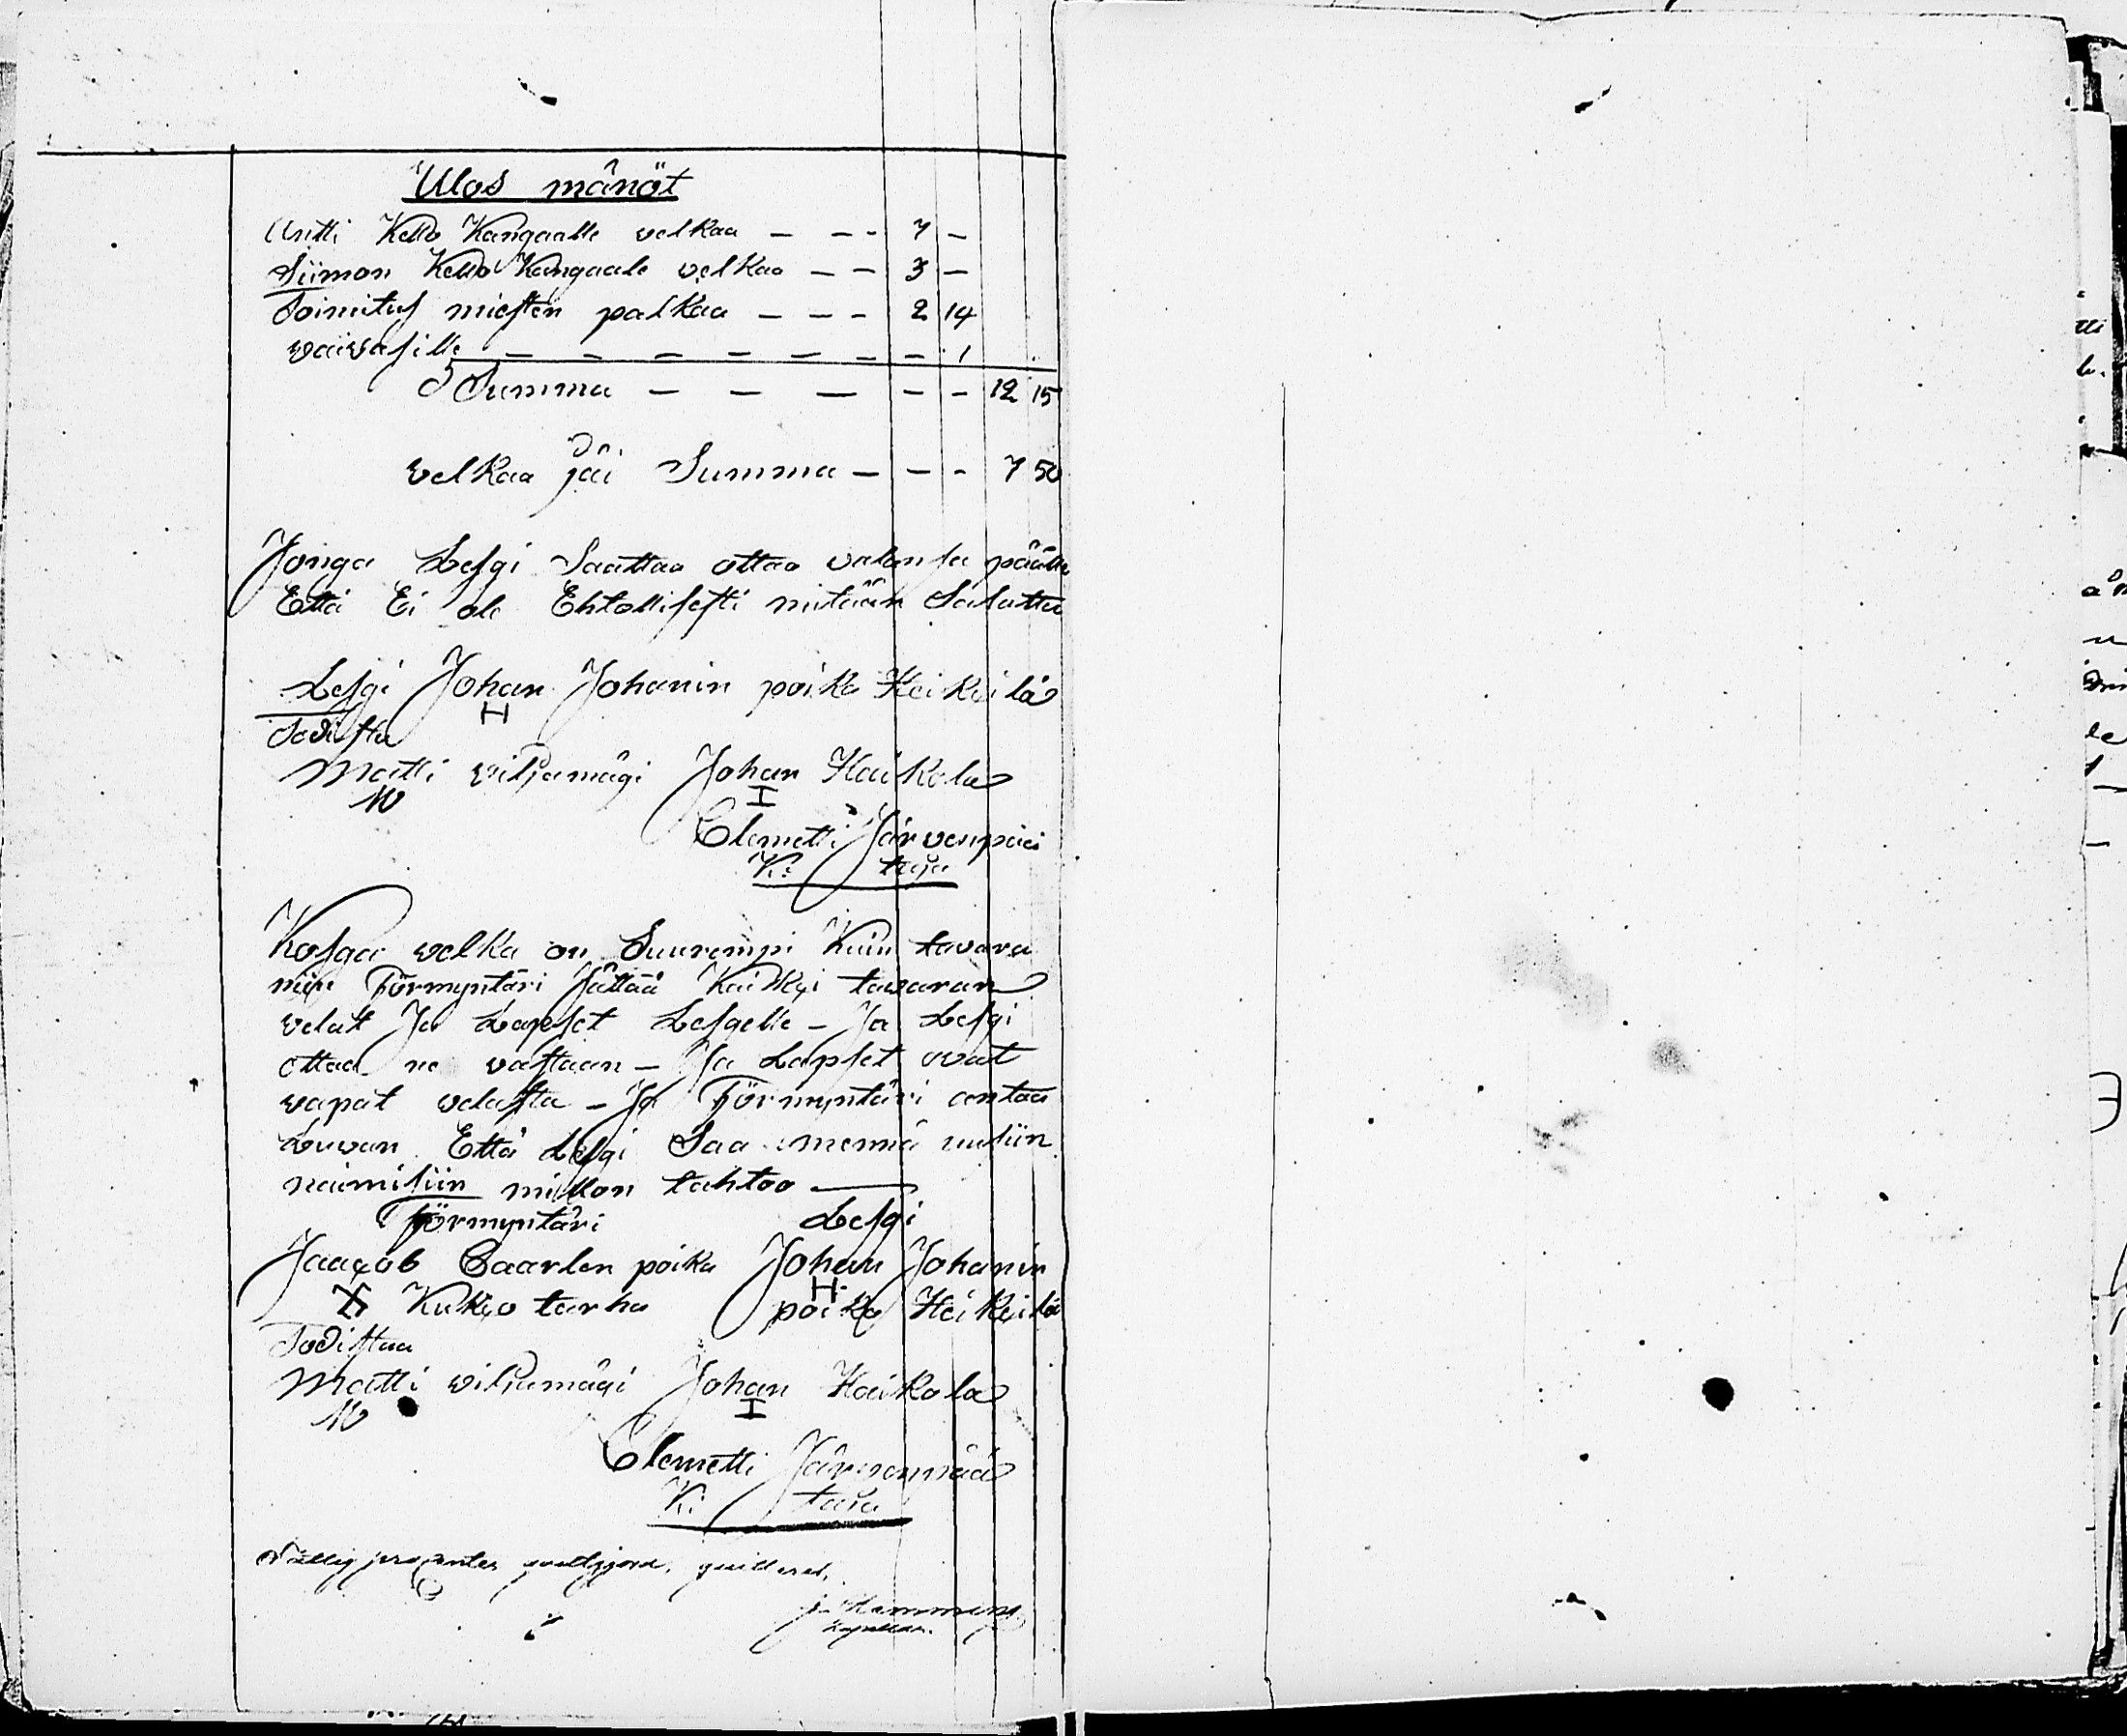 Ulos mänöt
Antti Kello Kangaalle velkaa — — - 7 —
Siimon Kello Kangaale velkaa — — 3 —
Toimitus miesten palkaa — — — 2 14
waiwasille — — — — — — — 1
Summa — — — — — 12 15
velkaa jäi Summa — — - 7 50
Jonga Lesgi Saattaa ottaa valansa päälle
Että Ei ole Ehtollisesti mitään Salattu
Lesgi Johan Johanin poika Heikeilä
H
Todistaa
Matti viljamägi Johan Haikola
M I
Clemetti Järvenpää
K: taja
Kosga velka on Suurempi Kuin tavara
niin Förmyntäri Jättää Kaikki tawaran
velat Ja Lapset Lesgelle — Ja Lesgi
ottaa ne vastaan — Ja Lapset ovat
vapat velasta — Ja Förmyntäri antaa
Luvan Että Lesgi Saa mennä uusiin
naimisiin millon tahtoo —
Förmyntäri Lesgi
Jaacob Caarlen poika Johan Johanin
Kukko tarha H poika Heikeilä
Todistaa
Matti viljamägi Johan Haikola
M I
Clemetti Järvenpää
K: taja
Fattig procenten godtgjord, quitteras,